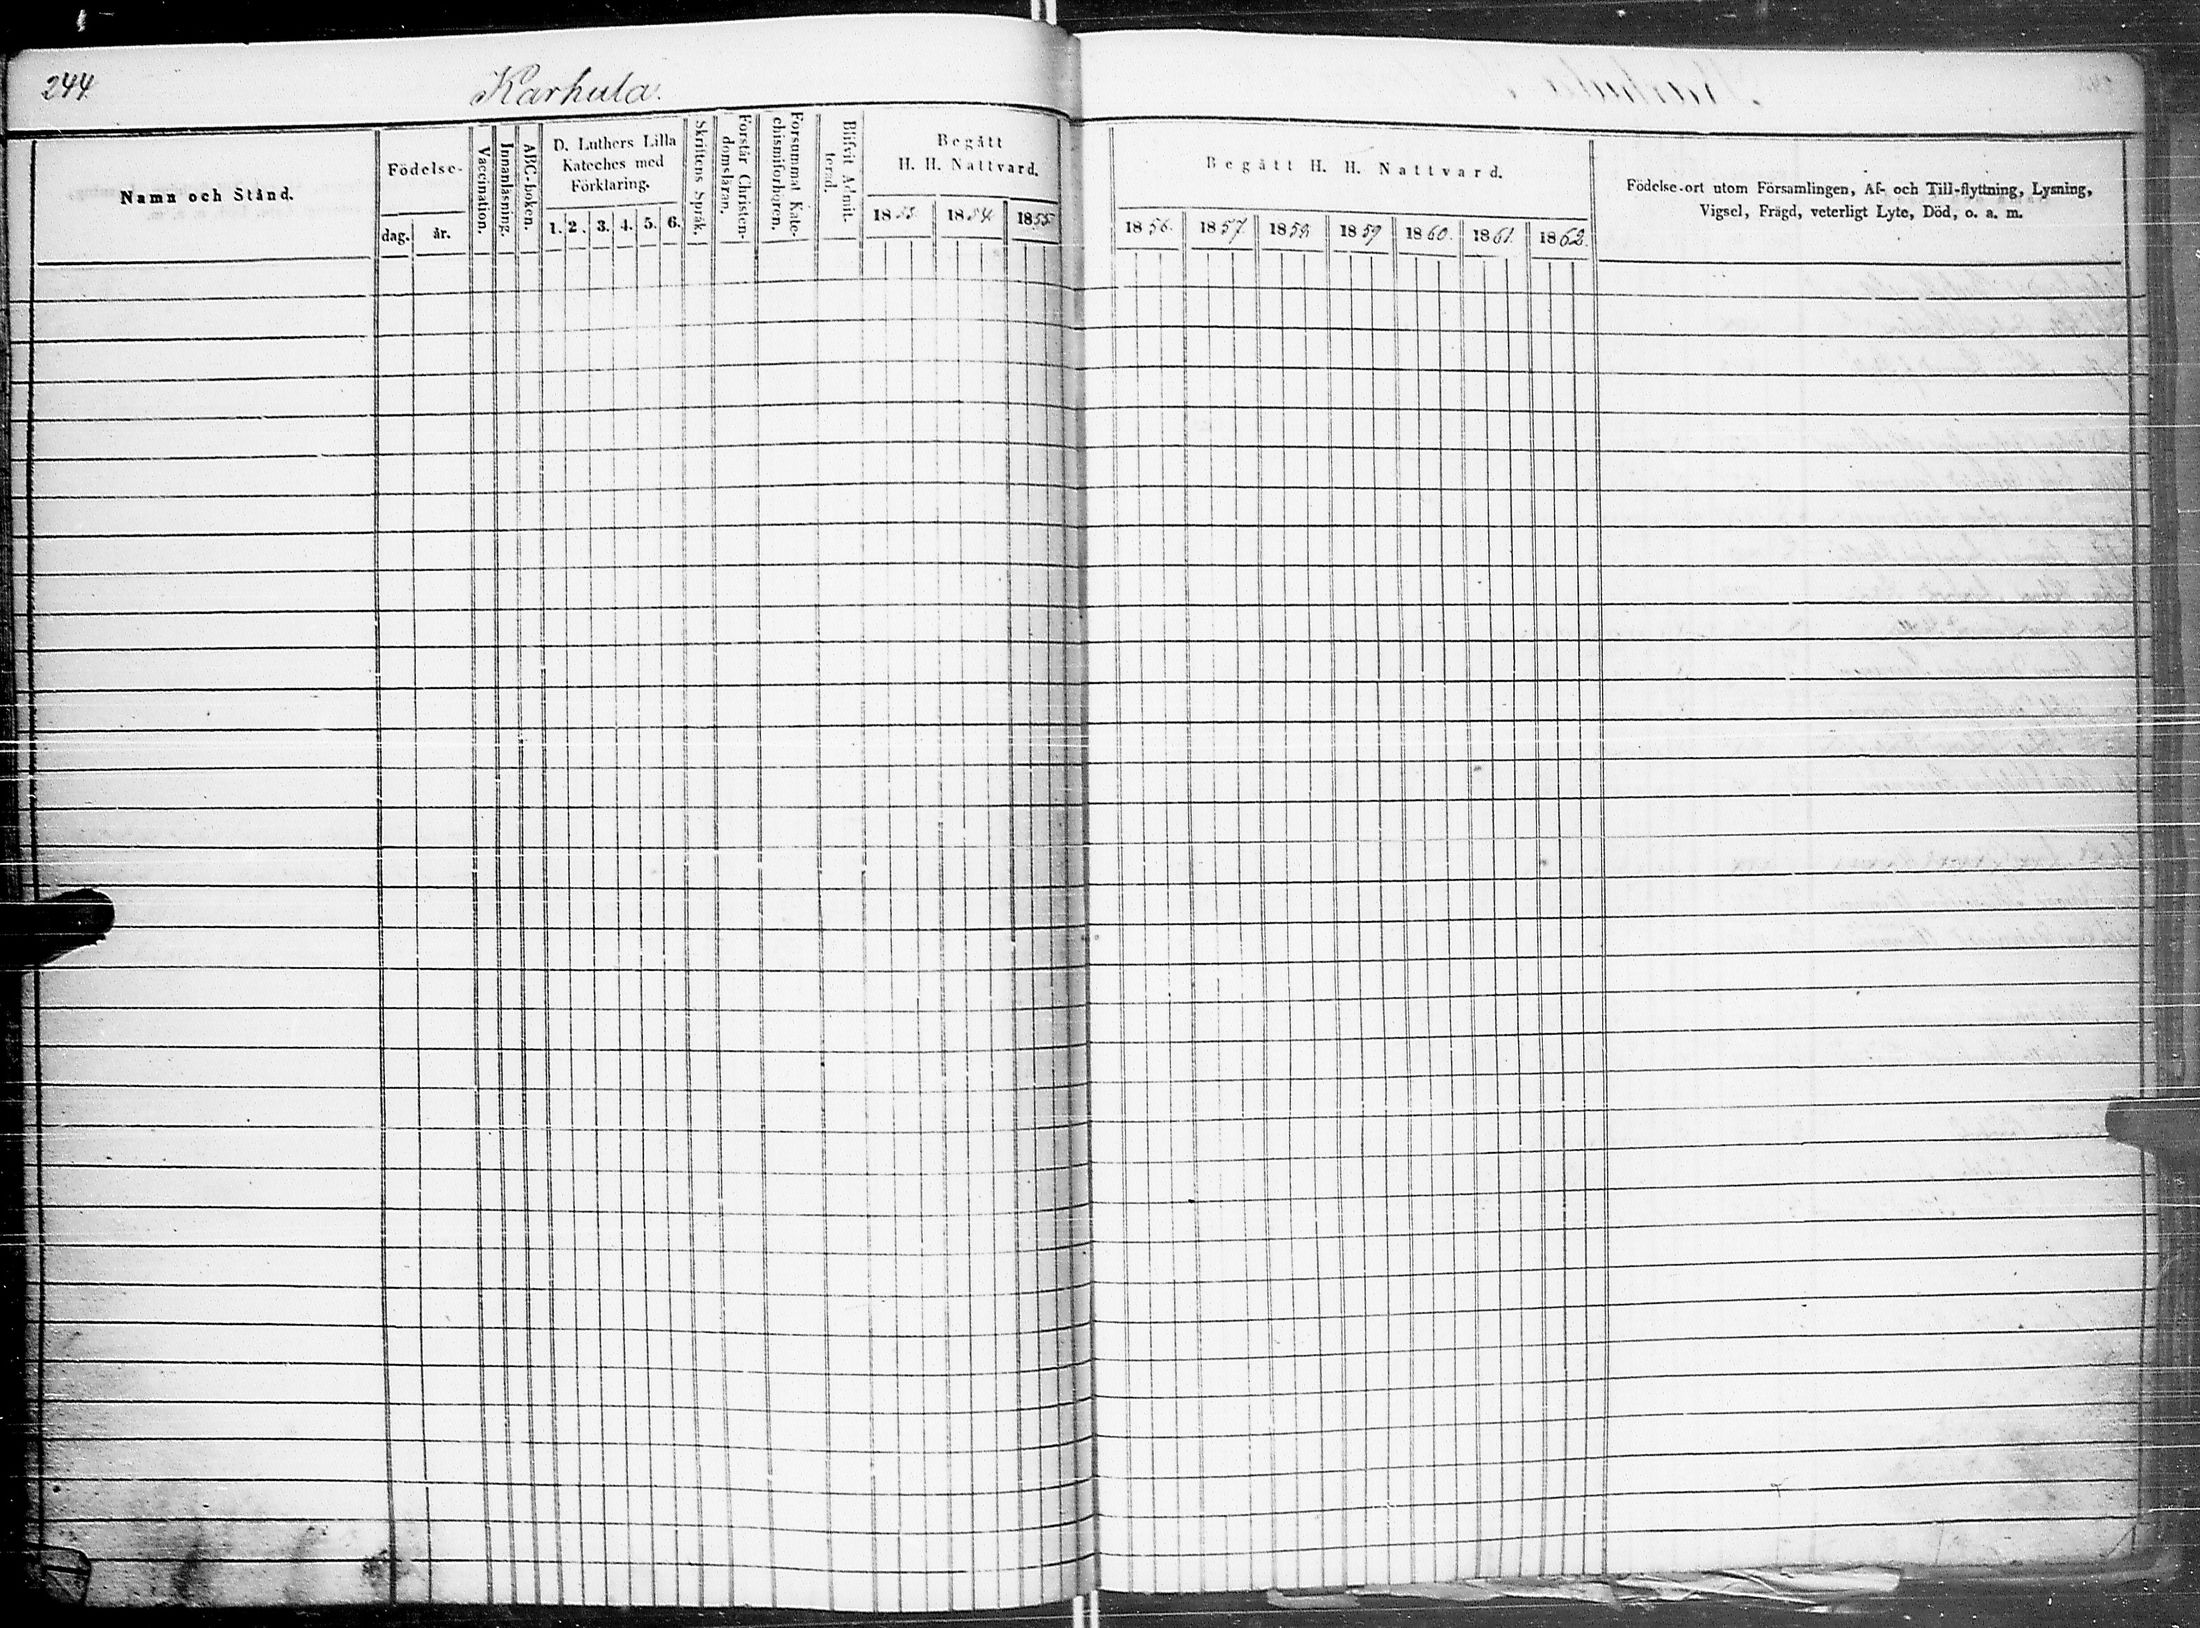 244.
Karhula.
Namn och Stånd.
Födelse-
dag.
år.
Vaccination.
Innanläsning.
ABC-boken.
D. Luthers Lilla
Kateches med
Förklaring.
1. 2. 3. 4. 5. 6.
Skriftens Språk.
Förstår Christen-
domsläran.
Försummat Kate-
chismiförhören.
Blifvit Admit-
terad.
Begått
H. H. Nattvard.
1853. 1854. 1855.
Begått H. H. Nattvard.
1856. 1857. 1858. 1859 1860. 1861. 1862.
Födelse-ort utom Församlingen, Af- och Till-flyttning, Lysning,
Vigsel, Frägd, veterligt Lyte, Död, o. a. m.